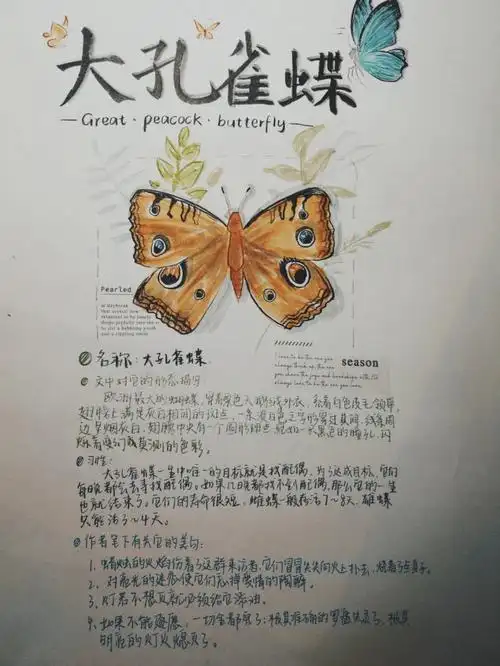 大孔雀蝶
— Great · peacock · butterfly —
Pearled
season
名称：大孔雀蝶
文中对它的形态描写
欧洲最大的蝴蝶，穿着栗色天鹅绒外衣，系着白色皮毛领带，
翅膀上满是灰白相间的斑点，一条淡白色之字形穿过其间，线条周
边呈烟灰白，翅膀中央有一个圆形斑点，宛如一只黑色的瞳孔，闪
烁着变幻莫测的色彩。
习性：
大孔雀蝶一生中唯一的目标就是找配偶，为了达成目标，它们
每晚都会去寻找配偶。如果几晚都找不到配偶，那么它的一生
也就结束了。它们的寿命很短，雌蝶一般存活7～8天，雄蝶
只能活3～4天。
作者笔下有关它的美句：
1. 蜡烛的火焰伤着了这群来访者，它们冒冒失失向火上扑去，烧着了点身子。
2. 对亮光的迷恋使它们忘掉爱情的陶醉。
3. 灯若不想灭就必须给它添油。
4. 如果不能远虑，一切全都完了：极其准确的罗盘失灵了，极其
明亮的灯火熄灭了。